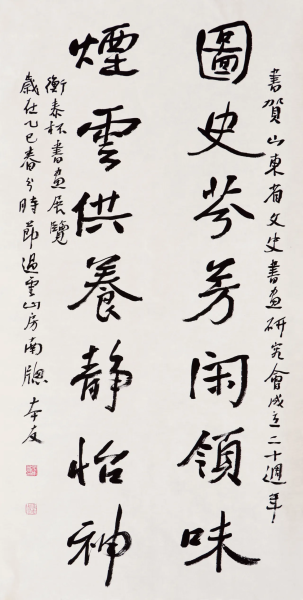 書賀山東省文史書画研究會成立二十週年!
圖史芬芳闲領味
煙雲供養静怡神
衡泰杯書画展覽
歲在乙巳春分時節過雲山房南牕 本友